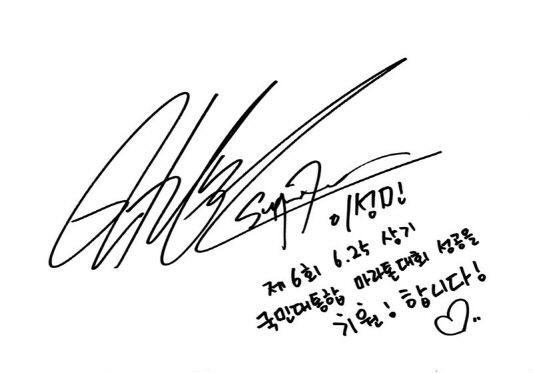 이성민
제 6회 6.25 상기
국민대통합 마라톤대회 성공을
기원! 합니다!